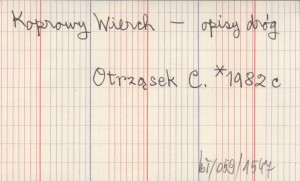 Koprowy Wierch — opisy dróg
Otrząsek C. *1982 c
bt/059/1547